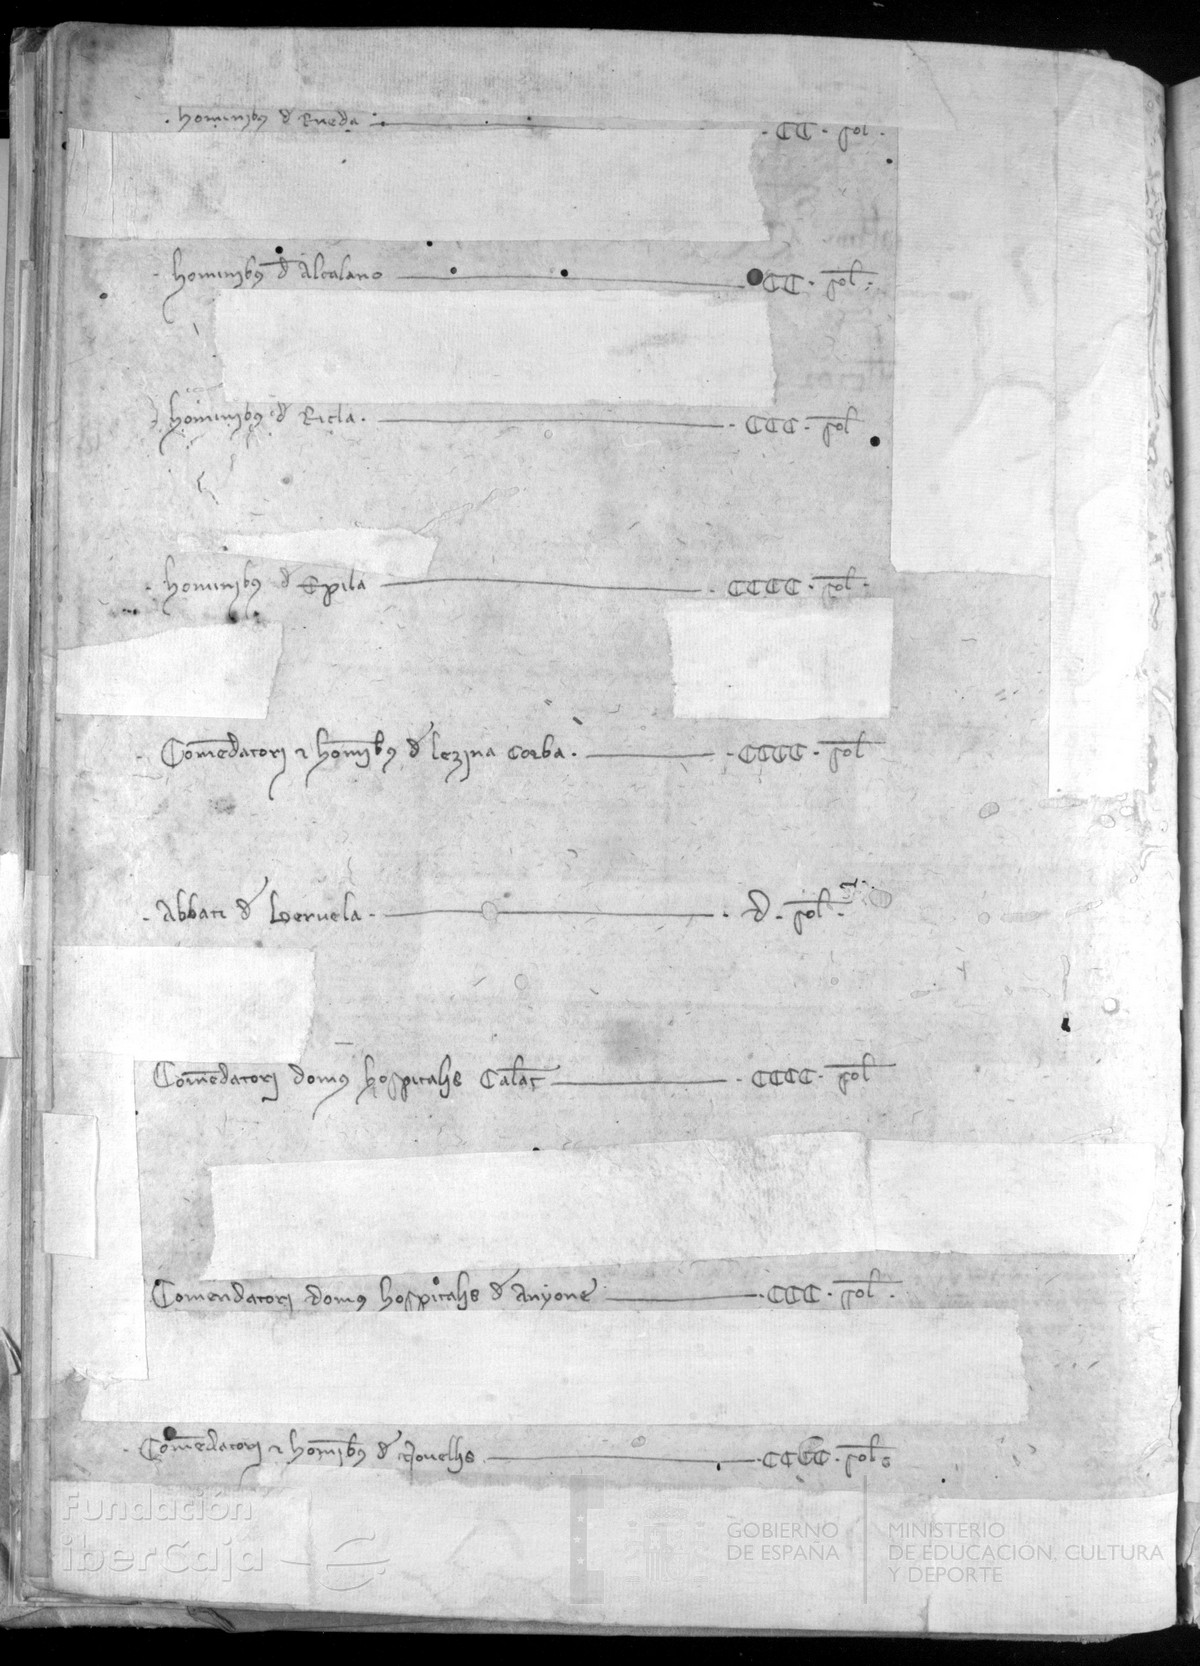 . hominibꝯ đ Rueda . — . CC . sol .
. hominibꝯ đ Alcalano — CC . sol .
hominibꝯ đ Ricla . — . CCC . sol
. hominibꝯ đ Epila — . CCCC . sol .
. Comēdatori ⁊ homībꝯ đ lezina corba . — . CCCC . sol
. Abbati đ Beruela . — . D . sol .
Comēdatori domꝯ hospitalis Calat̄ — . CCCC . sol
Comendatori domꝯ hospitalis đ Anyone — . CCC . sol .
. Comēdatori ⁊ homībꝯ đ — . CCCC . sol
Fundación
iberCaja
GOBIERNO
DE ESPAÑA
MINISTERIO
DE EDUCACIÓN, CULTURA
Y DEPORTE